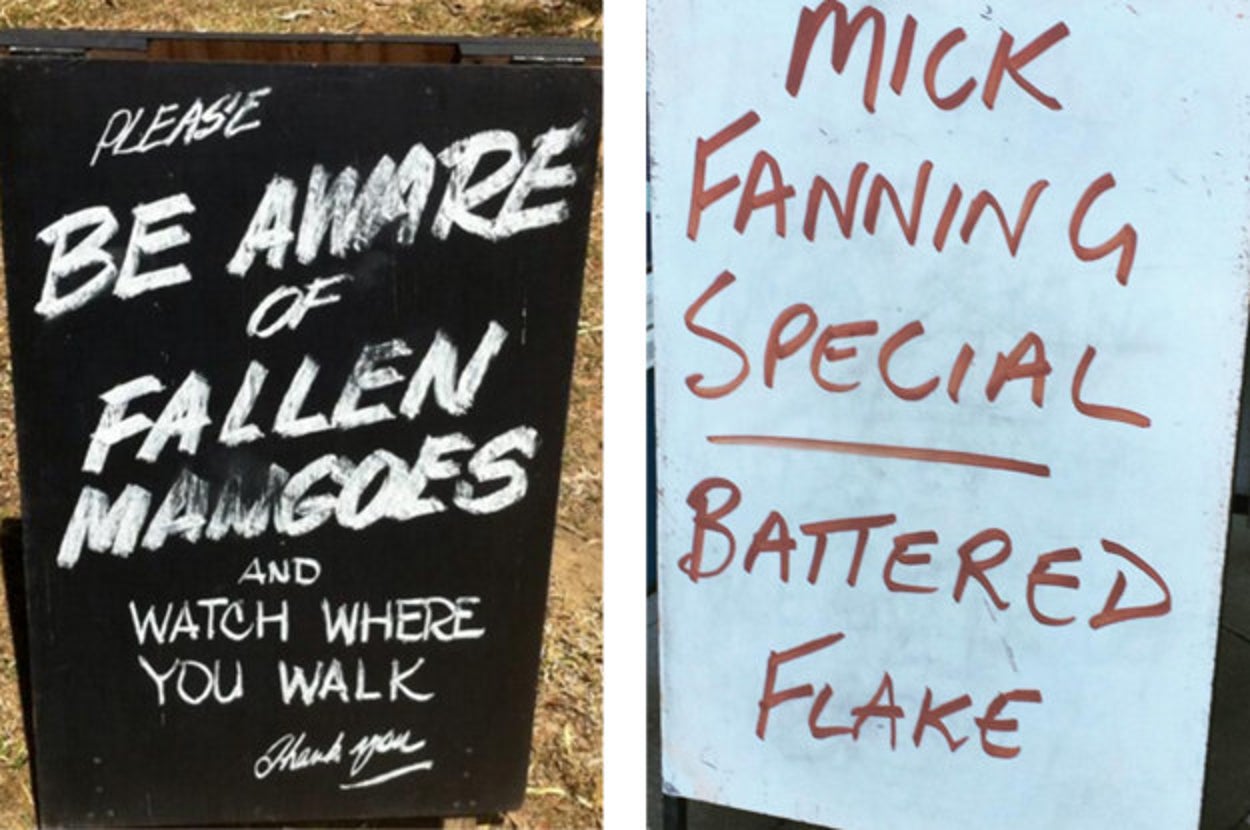 PLEASE
BE AWARE
OF
FALLEN
MANGOES
AND
WATCH WHERE
YOU WALK
Thank you
MICK
FANNING
SPECIAL
BATTERED
FLAKE